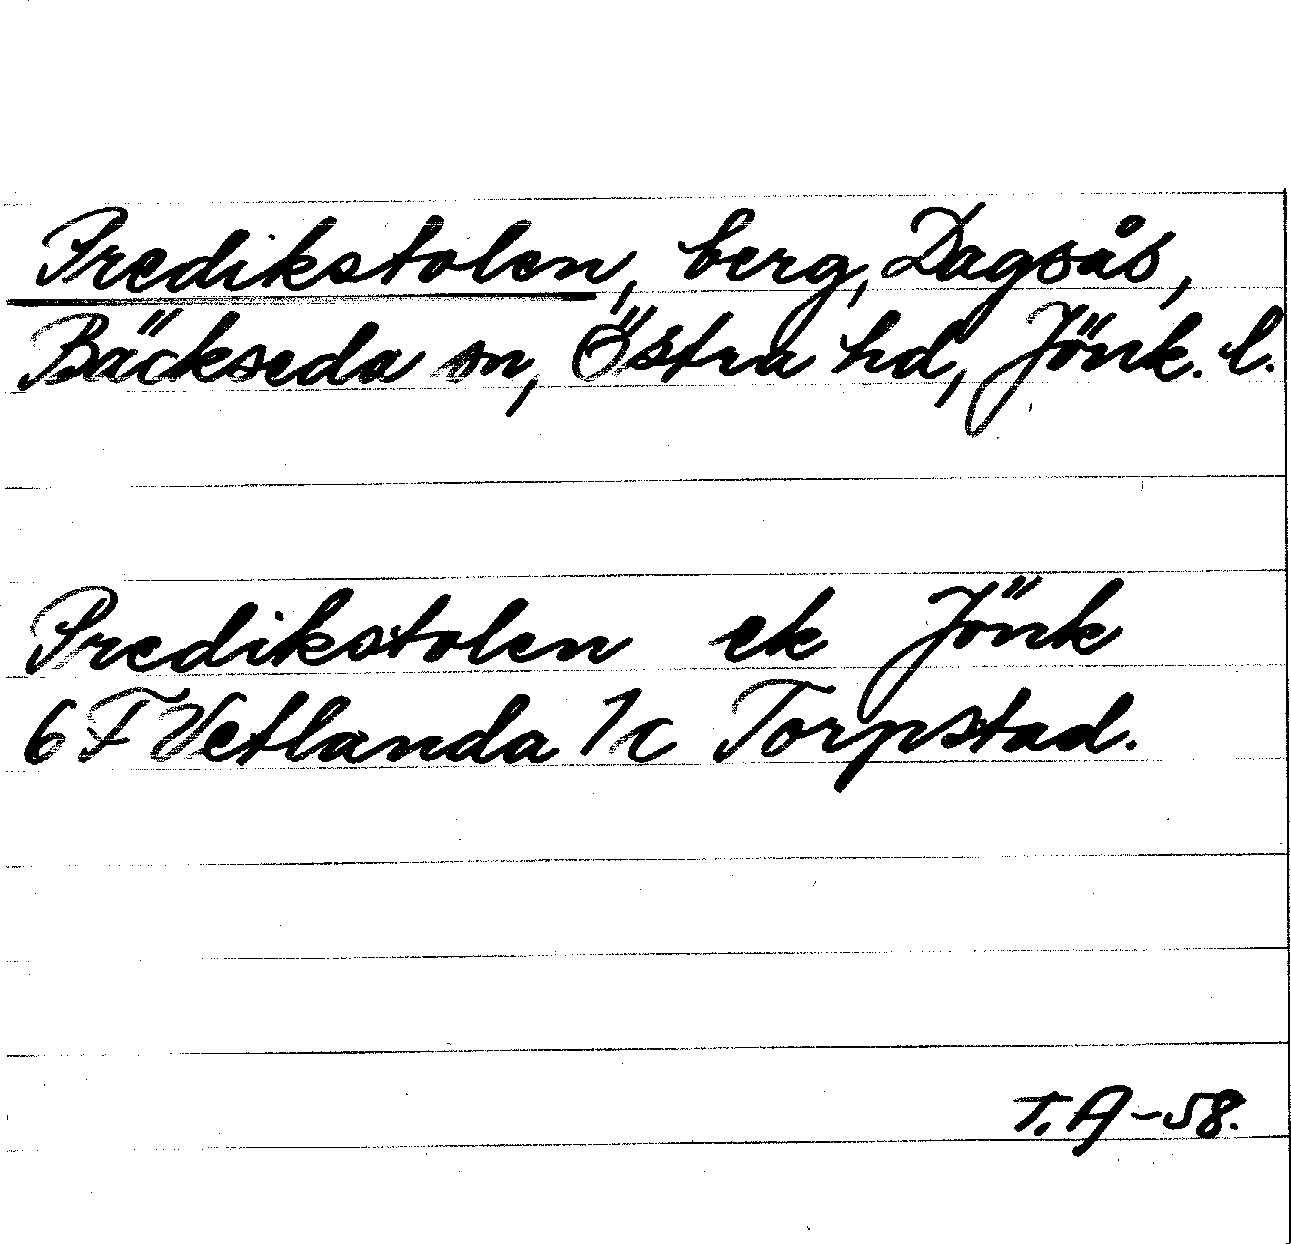 Predikstolen, berg, Dagsås,
Bäckseda sn, Östra hd, Jönk. l.
Predikstolen ek Jönk
6 F Vetlanda 1c Torpstad.
T.A-58.